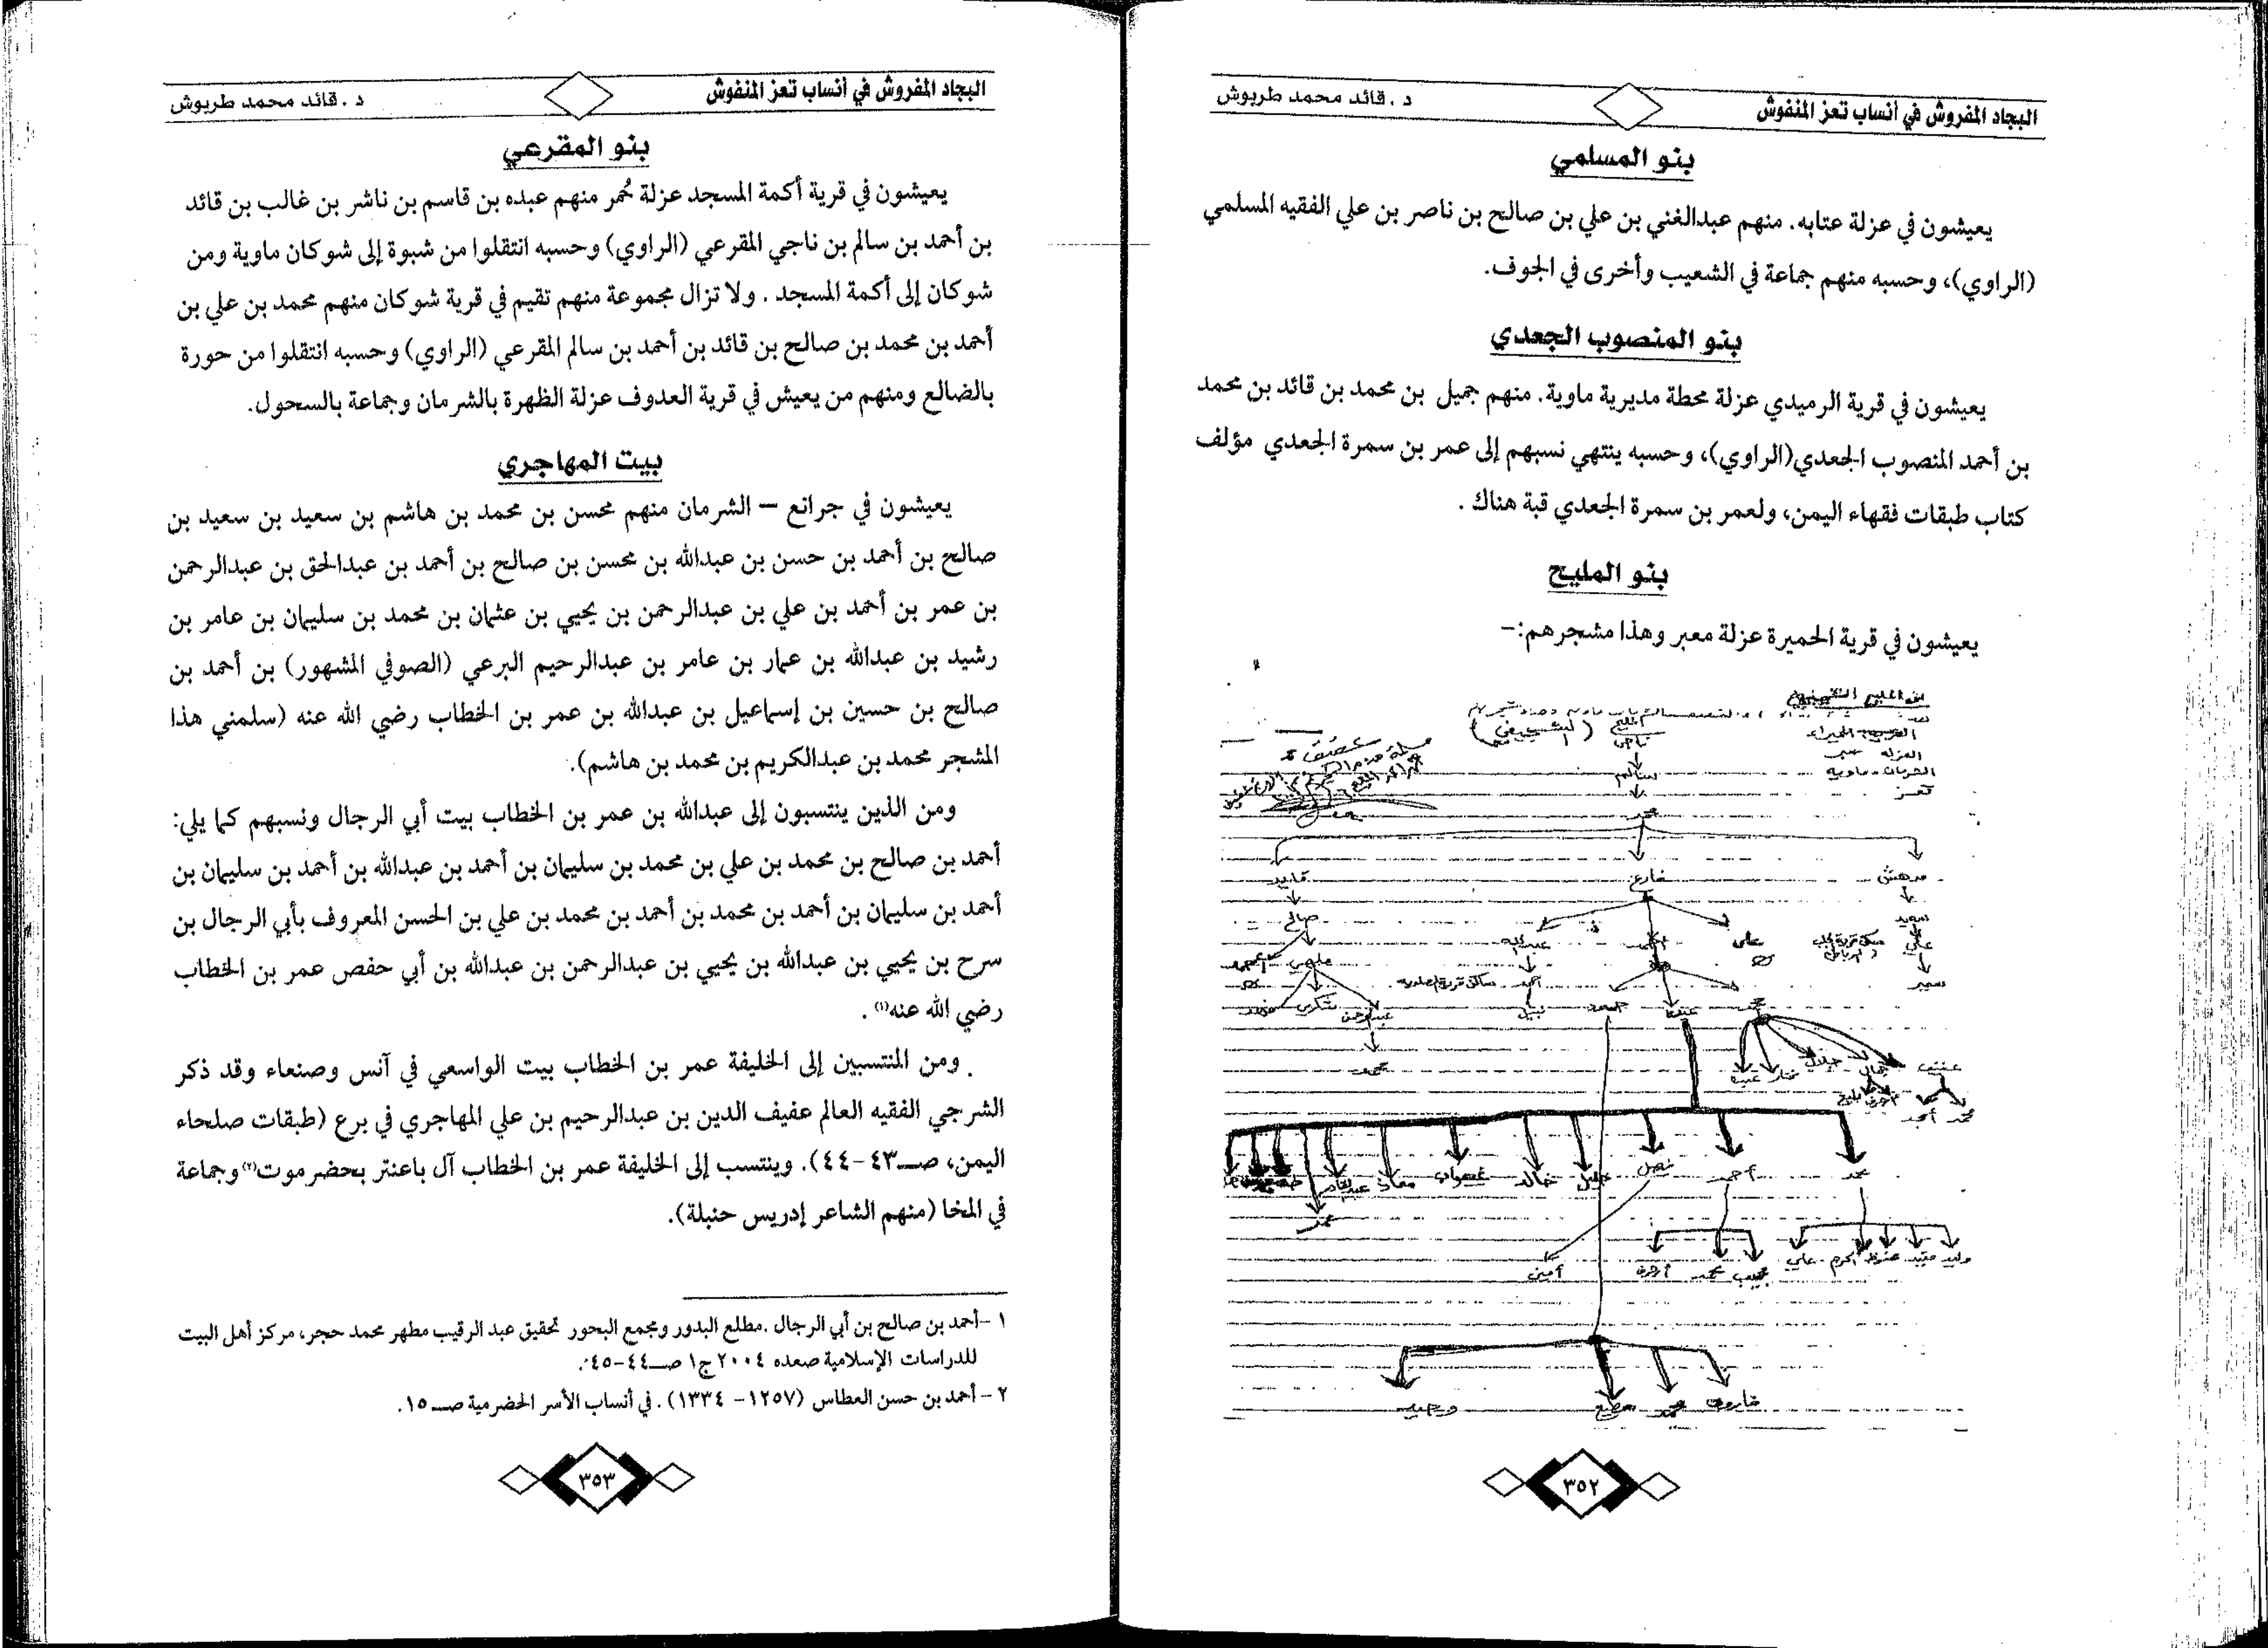 البجاد المفروش في أنساب تعز المنفوش
د. قائد محمد طربوش
بنو المسلمي
يعيشون في عزلة عتابه. منهم عبدالغني بن علي بن صالح بن ناصر بن علي الفقيه المسلمي
(الراوي)، وحسبه منهم جماعة في الشعيب وأخرى في الجوف.
بنو المنصوب الجعدي
يعيشون في قرية الرميدي عزلة محطة مديرية ماوية. منهم جميل بن محمد بن قائد بن محمد
بن أحمد المنصوب الجعدي(الراوي)، وحسبه ينتهي نسبهم إلى عمر بن سمرة الجعدي مؤلف
كتاب طبقات فقهاء اليمن، ولعمر بن سمرة الجعدي قبة هناك .
بنو المليح
يعيشون في قرية الحميرة عزلة معبر وهذا مشجرهم:-
ناجي
سالم
محمد
مدهش
فارع
قايد
سعيد
صالح
علي
أحمد
عبدالله
علي
سمير
أحمد
نبيل
شكري
عبدالرحمن
محمد
محمد أحمد
محمد
أحمد
فيصل
خليل
خالد
معاذ
عمر
وليد
أكرم
علي
محمد
أمين
فاروق
محمد
مطيع
وحيد
٣٥٢
البجاد المفروش في أنساب تعز المنفوش
د. قائد محمد طربوش
بنو المقرعي
يعيشون في قرية أكمة المسجد عزلة حُمر منهم عبده بن قاسم بن ناشر بن غالب بن قائد
بن أحمد بن سالم بن ناجي المقرعي (الراوي) وحسبه انتقلوا من شبوة إلى شوكان ماوية ومن
شوكان إلى أكمة المسجد . ولا تزال مجموعة منهم تقيم في قرية شوكان منهم محمد بن علي بن
أحمد بن محمد بن صالح بن قائد بن أحمد بن سالم المقرعي (الراوي) وحسبه انتقلوا من حورة
بالضالع ومنهم من يعيش في قرية العدوف عزلة الظهرة بالشرمان وجماعة بالسحول.
بيت المهاجري
يعيشون في جرانع – الشرمان منهم محسن بن محمد بن هاشم بن سعيد بن سعيد بن
صالح بن أحمد بن حسن بن عبدالله بن محسن بن صالح بن أحمد بن عبدالحق بن عبدالرحمن
بن عمر بن أحمد بن علي بن عبدالرحمن بن يحيي بن عثمان بن محمد بن سليمان بن عامر بن
رشيد بن عبدالله بن عمار بن عامر بن عبدالرحيم البرعي (الصوفي المشهور) بن أحمد بن
صالح بن حسين بن إسماعيل بن عبدالله بن عمر بن الخطاب رضي الله عنه (سلمني هذا
المشجر محمد بن عبدالكريم بن محمد بن هاشم).
ومن الذين ينتسبون إلى عبدالله بن عمر بن الخطاب بيت أبي الرجال ونسبهم كما يلي:
أحمد بن صالح بن محمد بن علي بن محمد بن سليمان بن أحمد بن عبدالله بن أحمد بن سليمان بن
أحمد بن سليمان بن أحمد بن محمد بن أحمد بن محمد بن علي بن الحسن المعروف بأبي الرجال بن
سرح بن يحيي بن عبدالله بن يحيي بن عبدالرحمن بن عبدالله بن أبي حفص عمر بن الخطاب
رضي الله عنه(١) .
ومن المنتسبين إلى الخليفة عمر بن الخطاب بيت الواسعي في آنس وصنعاء وقد ذكر
الشرجي الفقيه العالم عفيف الدين بن عبدالرحيم بن علي المهاجري في برع (طبقات صلحاء
اليمن، صـ٤٣-٤٤). وينتسب إلى الخليفة عمر بن الخطاب آل باعنتر بحضرموت(٢) وجماعة
في المخا (منهم الشاعر إدريس حنبلة).
١ -أحمد بن صالح بن أبي الرجال .مطلع البدور ومجمع البحور تحقيق عبد الرقيب مطهر محمد حجر، مركز أهل البيت
للدراسات الإسلامية صعده ٢٠٠٤ ج١ صـ٤٤-٤٥.
٢ -أحمد بن حسن العطاس (١٢٥٧- ١٣٣٤) . في أنساب الأسر الحضرمية صـ١٥.
٣٥٣